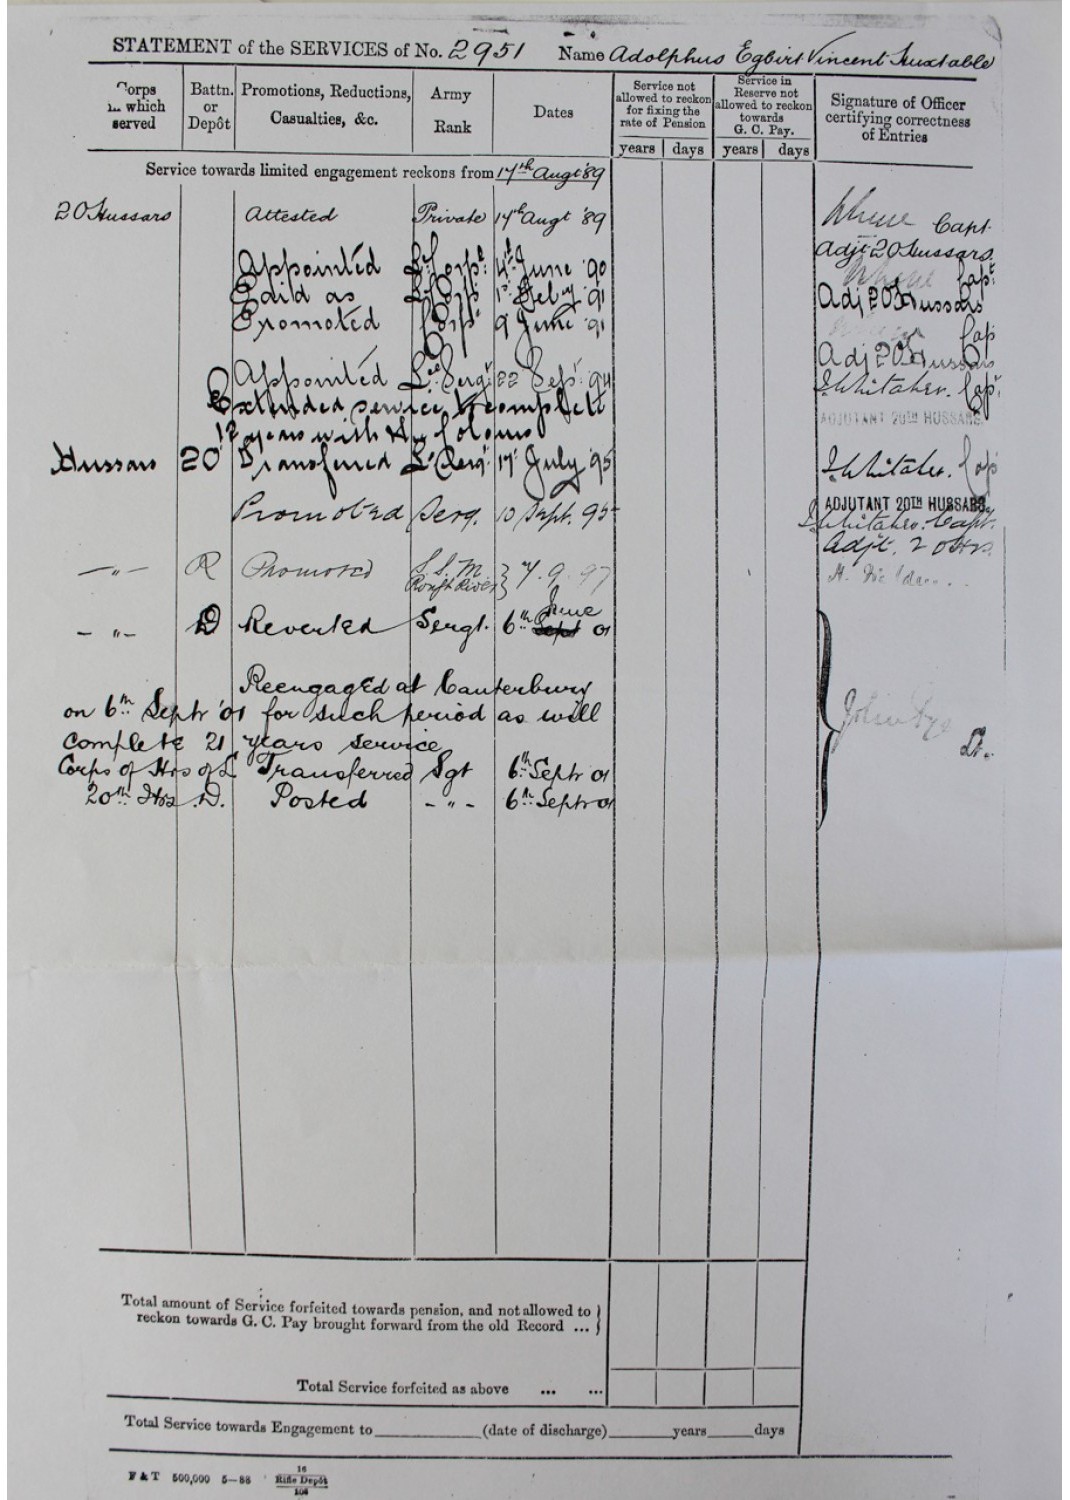 STATEMENT of the SERVICES of No. 2951 Name Adolphus Egbirt Vincent Huxtable
Corps in which served
Battn. or Depôt
Promotions, Reductions, Casualties, &c.
Army Rank
Dates
Service not allowed to reckon for fixing the rate of Pension
years days
Service in Reserve not allowed to reckon towards G. C. Pay.
years days
Signature of Officer certifying correctness of Entries
Service towards limited engagement reckons from 17th Augt '89
20 Hussars Attested Private 17th Augt '89 Capt.
Adjt 20 Hussars
Appointed Lce Corpl: 4th June '90 Capt:
Paid as Lce Corpl 1st Feby '91 Adj 20 Hussars
Promoted Corpl 9 June '91 Cap
Adj 20 Hussars
Appointed Lce Sergt 22 Sept 94 Whitaker. Capt:
Extended service to complete ADJUTANT 20TH HUSSARS.
12 years with the Colours
Hussars 20 Transferred Lce Serg: 17 July 95 Whitaker. Cap
ADJUTANT 20TH HUSSARS.
Promoted Serg. 10 Sept. 95 Whitaker. Capt.
Adjt. 20 Hrs.
—"— R Promoted S.S.M. Rough Rider } 7.9.97
—"— D Reverted Sergt. 6th June 01
Reengaged at Canterbury
on 6th Septr '01 for such period as will
complete 21 years service
Lt.
Corps of Hrs of L Transferred Sgt 6th Septr 01
20th Hrs D. Posted —"— 6th Septr 01
Total amount of Service forfeited towards pension, and not allowed to
reckon towards G. C. Pay brought forward from the old Record ... }
Total Service forfeited as above ... ...
Total Service towards Engagement to (date of discharge) years days
F & T 500,000 5—88
16
Rifle Depôt
106